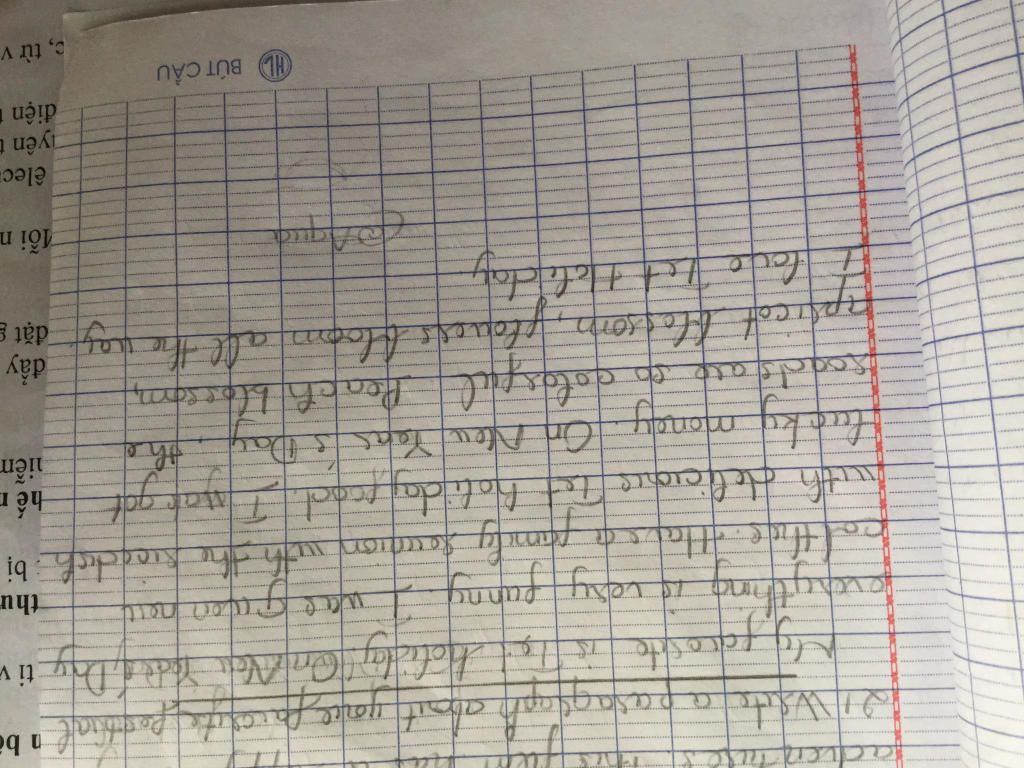 This film has a
2) Write a paragraph about your favorite festival
My favorite is Tet holiday. On New Year's Day
everything is very funny. I was given new
colthe. Have a family reunion with the
with delicious Tet holiday food. I got
lucky money. On New Year's Day, the
roads are so colorful. Peach blossom,
apricot blossom, flowers bloom all the way
I love Tet Holiday
@Aqua
HL BÚT CÂU
n bố
ti v
thu
bị
hế n
niễn
đây
đặt g
đổi n
điện t
c, từ v